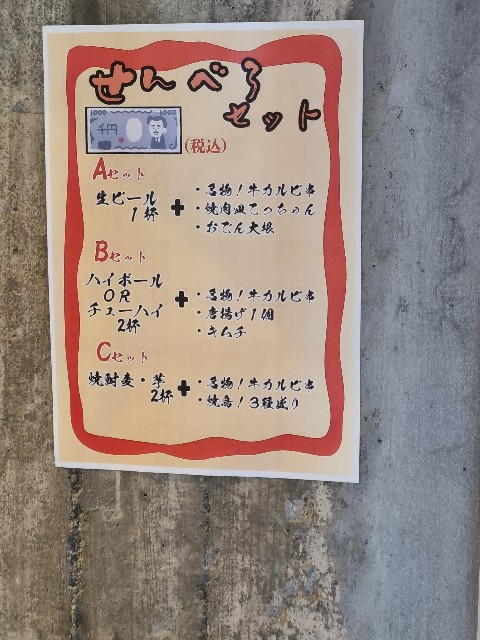 せんべろ
セット
1000 1000
千円
(税込)
Aセット
生ビール
1杯
+
・名物!牛カルビ串
・焼肉皿てっちゃん
・おでん大根
Bセット
ハイボール
OR
チューハイ
2杯
+
・名物!牛カルビ串
・唐揚げ1個
・キムチ
Cセット
焼酎麦・芋
2杯
+
・名物!牛カルビ串
・焼鳥!3種盛り